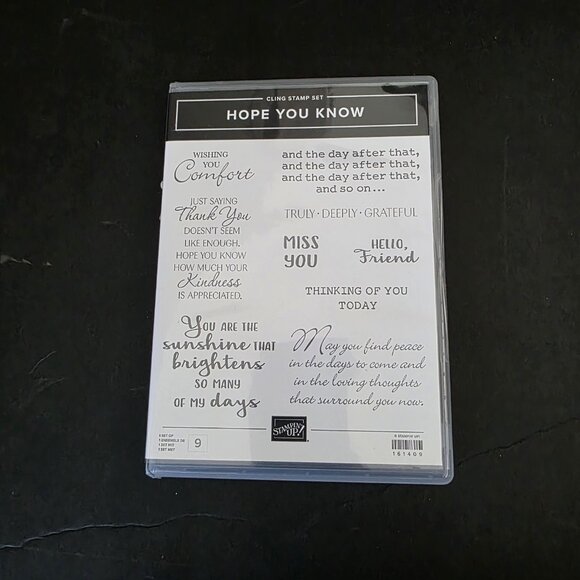 CLING STAMP SET
HOPE YOU KNOW
WISHING
YOU
Comfort
and the day after that,
and the day after that,
and the day after that,
and so on...
JUST SAYING
Thank You
DOESN'T SEEM
LIKE ENOUGH.
HOPE YOU KNOW
HOW MUCH YOUR
Kindness
IS APPRECIATED.
TRULY · DEEPLY · GRATEFUL
MISS
YOU
HELLO,
Friend
THINKING OF YOU
TODAY
YOU ARE THE
sunshine THAT
brightens
SO MANY
OF MY days
May you find peace
in the days to come and
in the loving thoughts
that surround you now.
SET OF
ENSEMBLE DE
SET MIT
SET MET
9
STAMPIN' UP!
© STAMPIN' UP!
161409